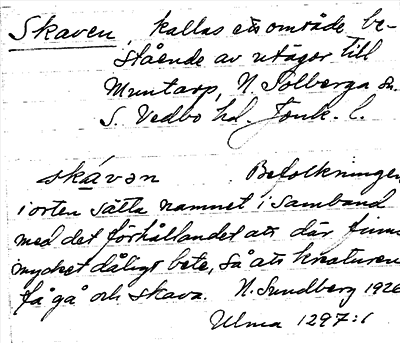 Skaven, kallas ett område be-
stående av utägor till
Muntarp, N. Solberga sn.
S. Vedbo hd. Jönk. l.
skávən Befolkningen
i orten sätta namnet i samband
med det förhållandet att där finns
mycket dåligt bete, så att kreaturen
få gå och skava. N. Sundberg 1926
Ulma 1297:1